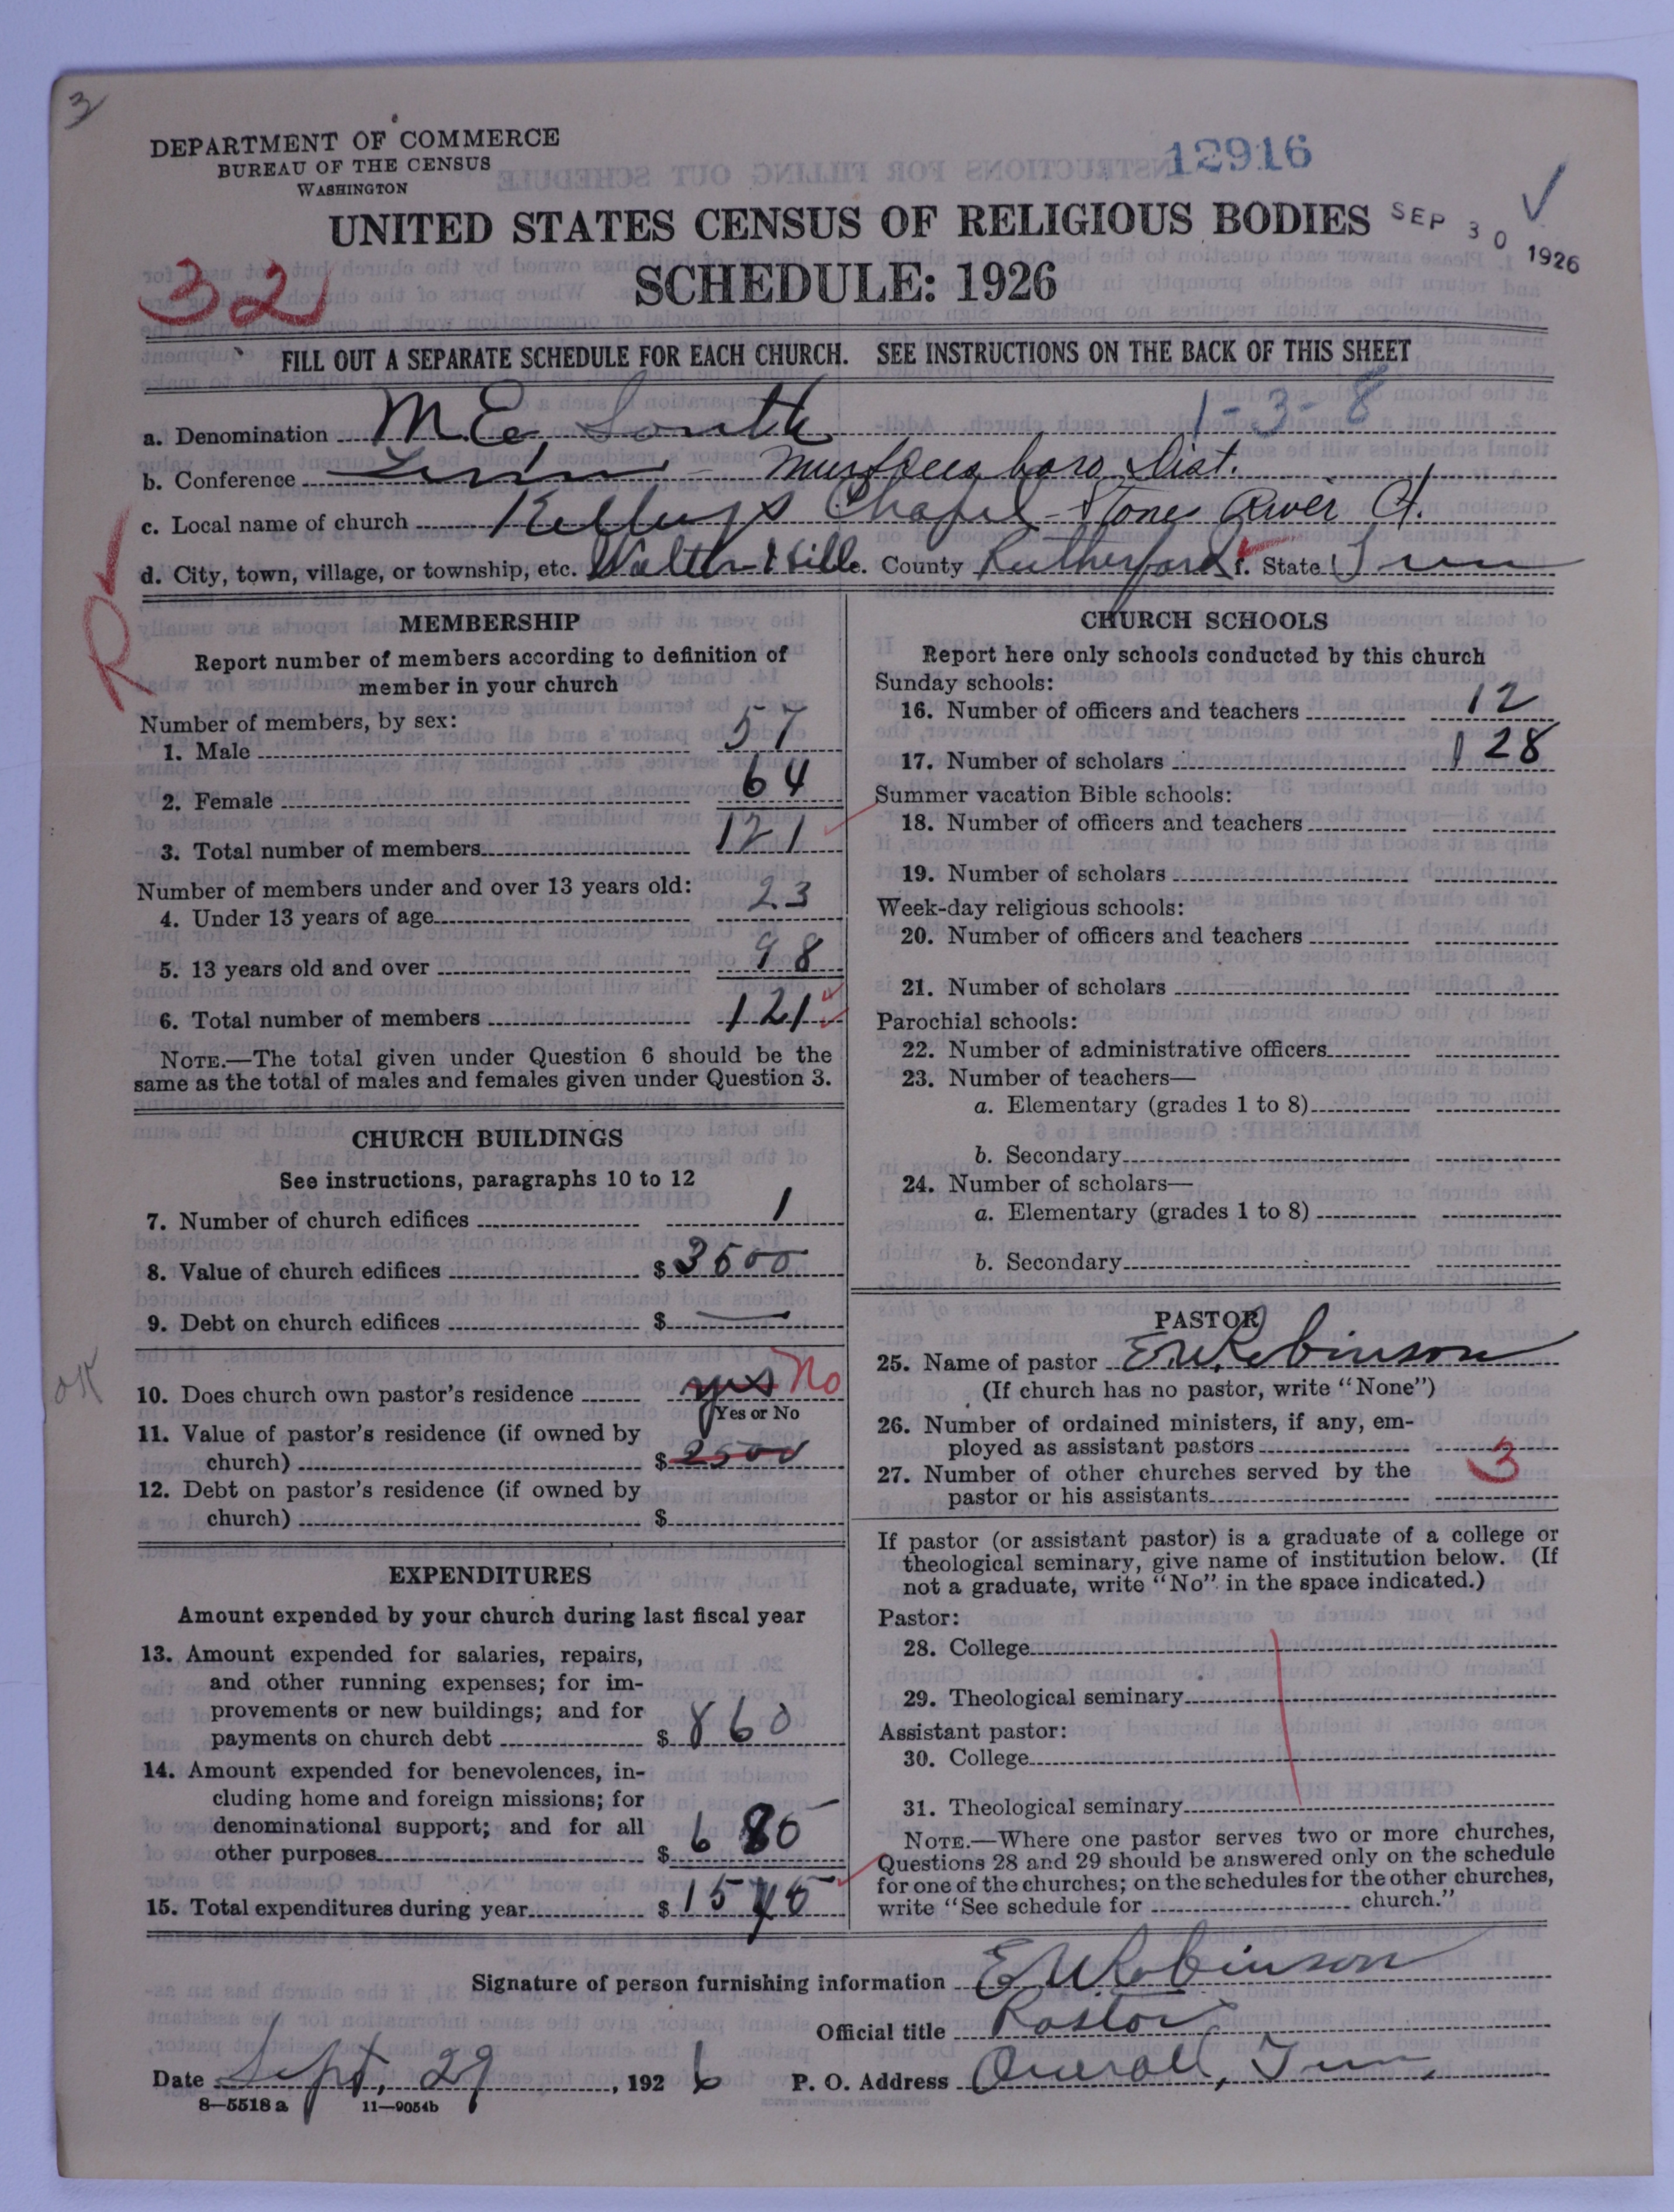 3
DEPARTMENT OF COMMERCE
BUREAU OF THE CENSUS
WASHINGTON
12916
UNITED STATES CENSUS OF RELIGIOUS BODIES
SEP 30 1926
SCHEDULE: 1926
32
FILL OUT A SEPARATE SCHEDULE FOR EACH CHURCH. SEE INSTRUCTIONS ON THE BACK OF THIS SHEET
1-3-8
a. Denomination M.E. South
b. Conference Tenn - Murfreesboro Dist.
c. Local name of church Chapel - Stone River Ct.
d. City, town, village, or township, etc. Walter Hill e. County Rutherford f. State Tenn
R
MEMBERSHIP
Report number of members according to definition of
member in your church
Number of members, by sex:
1. Male 57
2. Female 64
3. Total number of members 121
Number of members under and over 13 years old:
4. Under 13 years of age 23
5. 13 years old and over 98
6. Total number of members 121
NOTE.—The total given under Question 6 should be the
same as the total of males and females given under Question 3.
CHURCH BUILDINGS
See instructions, paragraphs 10 to 12
7. Number of church edifices 1
8. Value of church edifices $3500
9. Debt on church edifices $ —
OK
10. Does church own pastor's residence yes No
Yes or No
11. Value of pastor's residence (if owned by
church) $2500
12. Debt on pastor's residence (if owned by
church) $
EXPENDITURES
Amount expended by your church during last fiscal year
13. Amount expended for salaries, repairs,
and other running expenses; for im-
provements or new buildings; and for
payments on church debt $ 860
14. Amount expended for benevolences, in-
cluding home and foreign missions; for
denominational support; and for all
other purposes $ 685
15. Total expenditures during year $ 1545
CHURCH SCHOOLS
Report here only schools conducted by this church
Sunday schools:
16. Number of officers and teachers 12
17. Number of scholars 128
Summer vacation Bible schools:
18. Number of officers and teachers
19. Number of scholars
Week-day religious schools:
20. Number of officers and teachers
21. Number of scholars
Parochial schools:
22. Number of administrative officers
23. Number of teachers—
a. Elementary (grades 1 to 8)
b. Secondary
24. Number of scholars—
a. Elementary (grades 1 to 8)
b. Secondary
PASTOR
25. Name of pastor E.W. Robinson
(If church has no pastor, write "None")
26. Number of ordained ministers, if any, em-
ployed as assistant pastors
27. Number of other churches served by the
pastor or his assistants 3
If pastor (or assistant pastor) is a graduate of a college or
theological seminary, give name of institution below. (If
not a graduate, write "No" in the space indicated.)
Pastor:
28. College
29. Theological seminary
Assistant pastor:
30. College
31. Theological seminary
NOTE.—Where one pastor serves two or more churches,
Questions 28 and 29 should be answered only on the schedule
for one of the churches; on the schedules for the other churches,
write "See schedule for church."
Signature of person furnishing information E.W. Robinson
Official title Pastor
Date Sept, 29, 1926 P. O. Address Overall, Tenn,
8—5518a 11—9054b